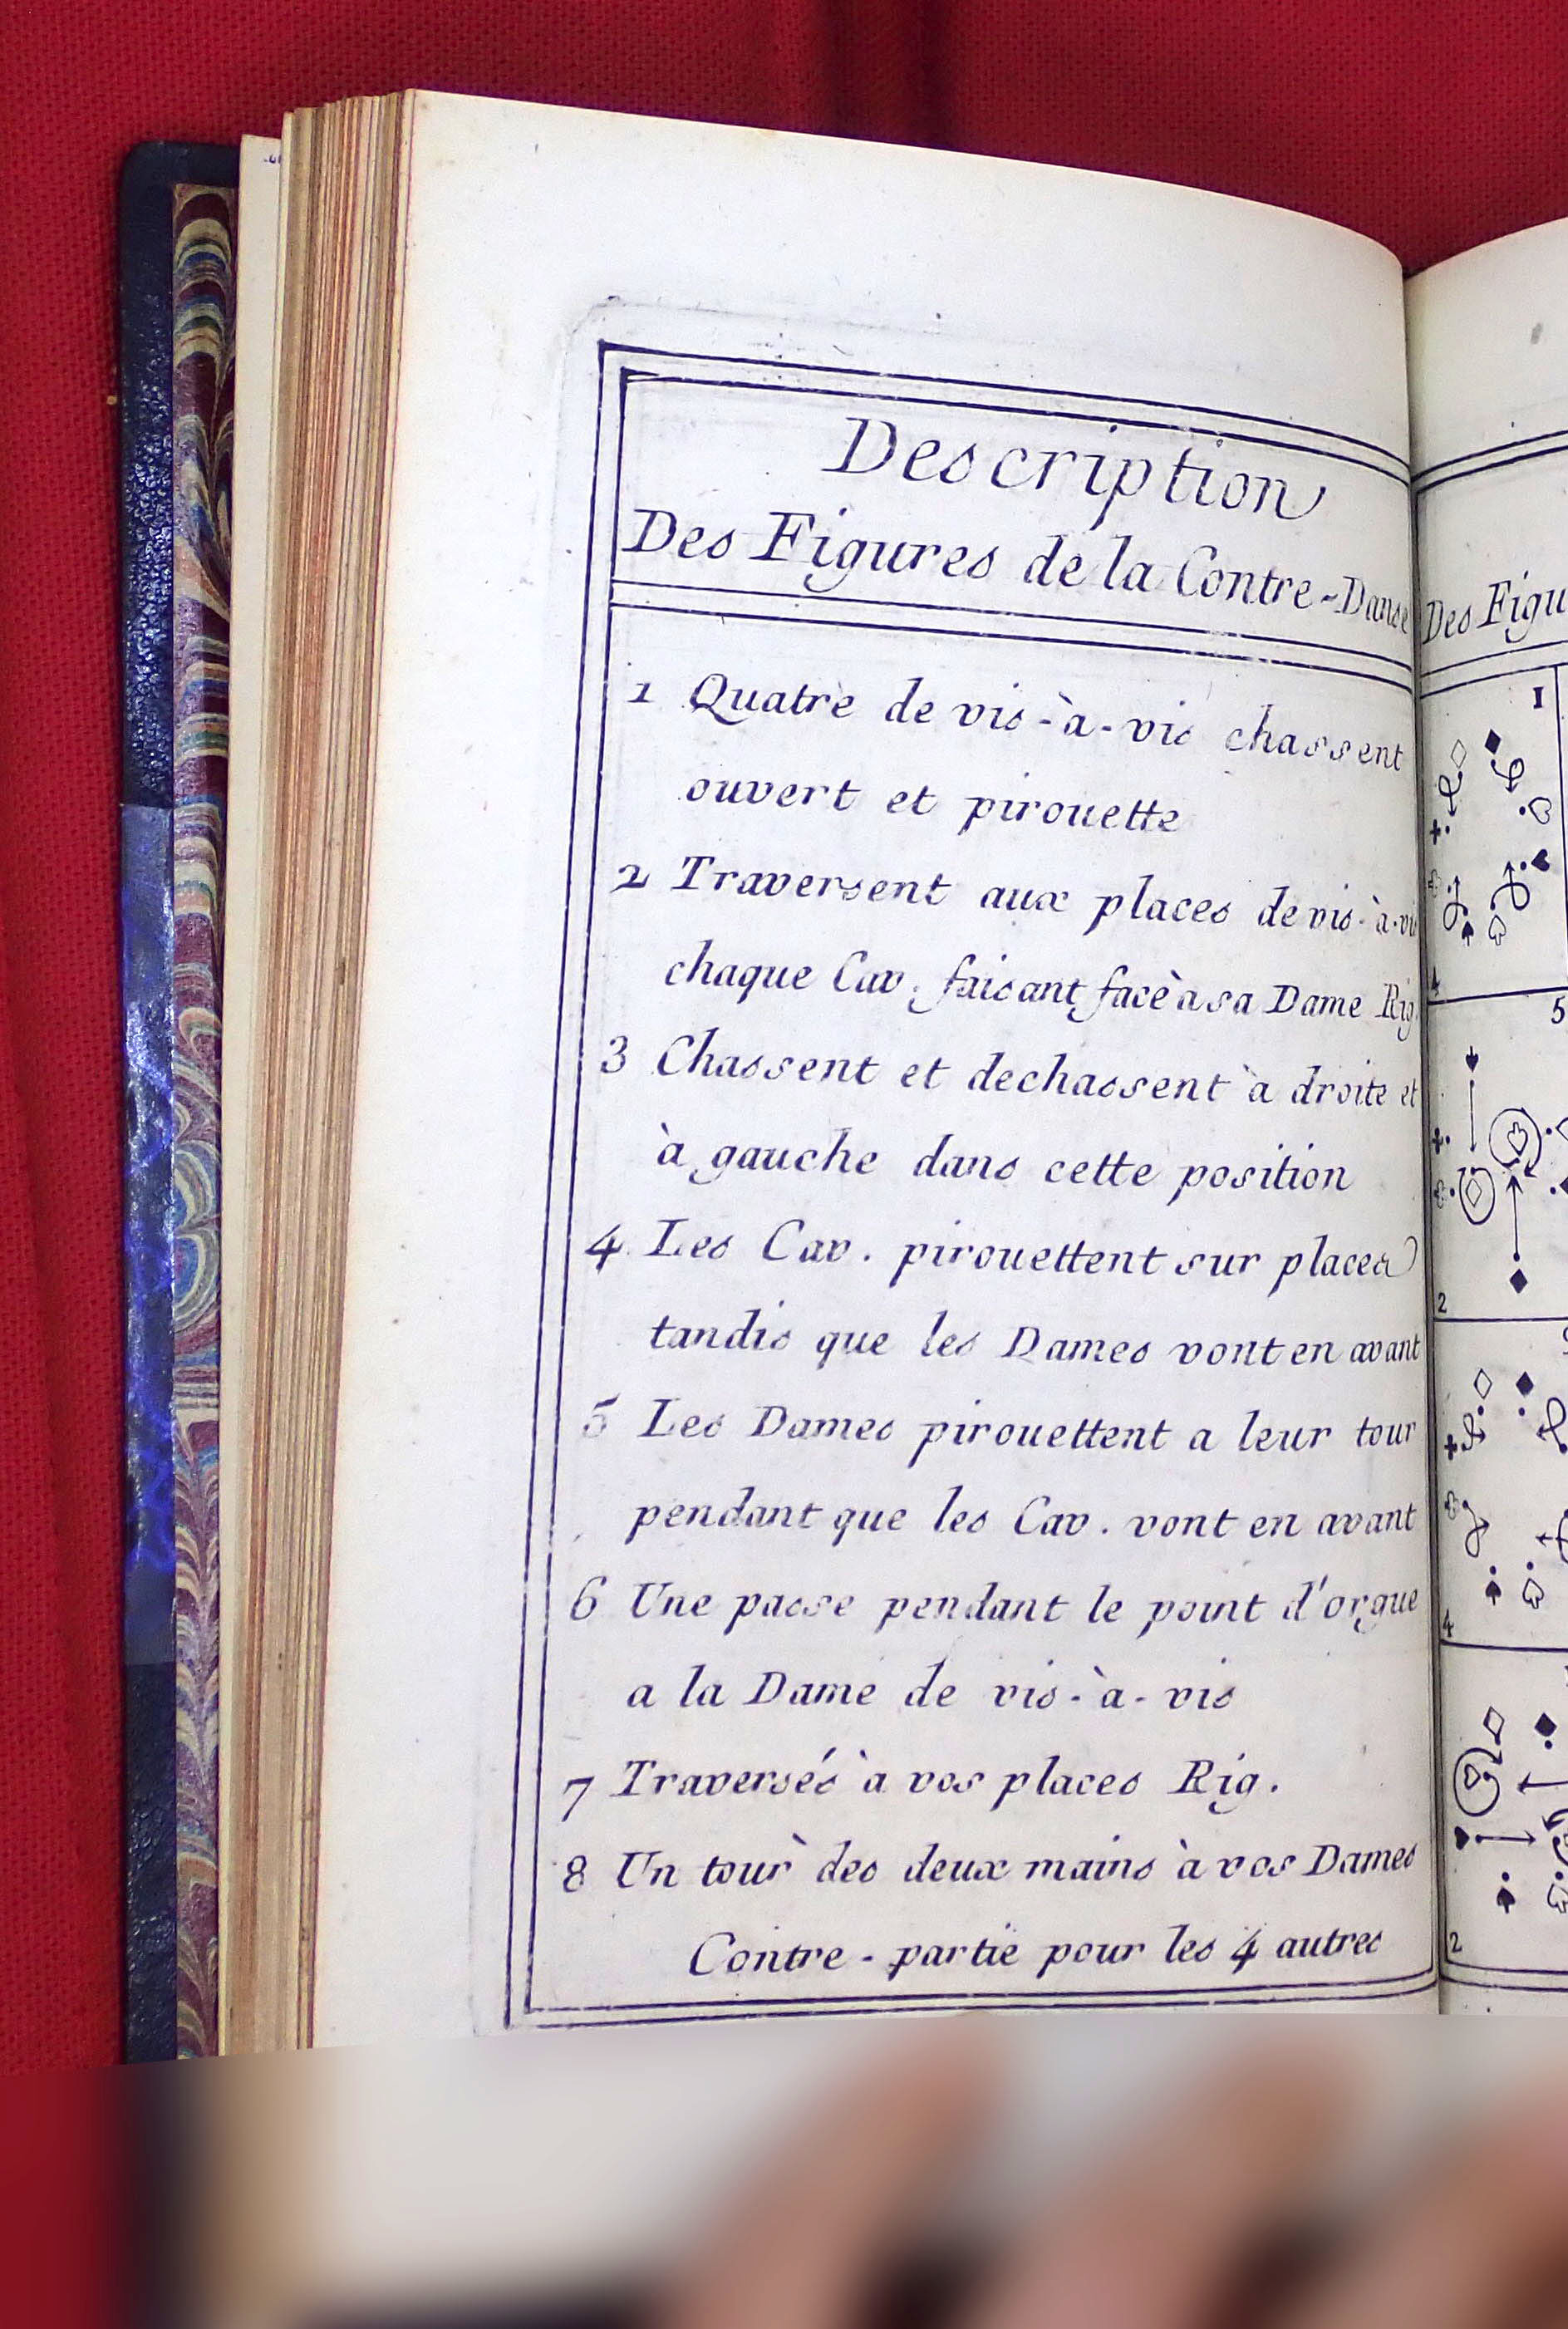 Description
Des Figures de la Contre-Danse
1 Quatre de vis-à-vis chassent
ouvert et pirouette
2 Traversent aux places de vis-à-vis
chaque Cav. faisant face à sa Dame Rig.
3 Chassent et dechassent à droite et
à gauche dans cette position
4 Les Cav. pirouettent sur places
tandis que les Dames vont en avant
5 Les Dames pirouettent a leur tour
pendant que les Cav. vont en avant
6 Une passe pendant le point d'orgue
a la Dame de vis-à-vis
7 Traversés à vos places Rig.
8 Un tour des deux mains à vos Dames
Contre-partie pour les 4 autres
Des Figu
1
4
5
2
4
2